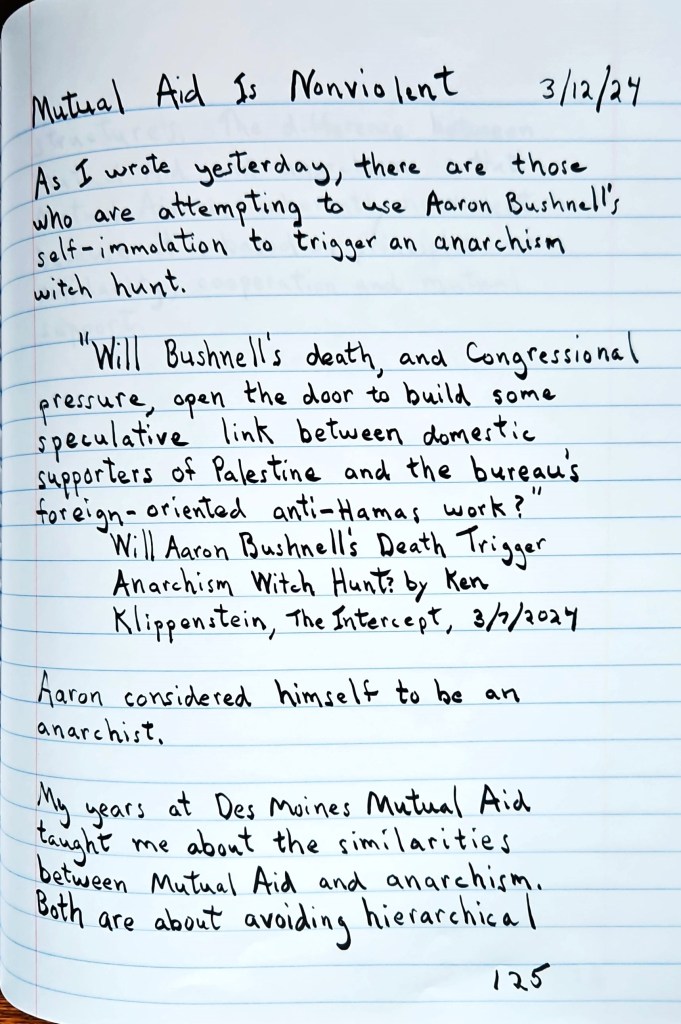 Mutual Aid Is Nonviolent 3/12/24
As I wrote yesterday, there are those
who are attempting to use Aaron Bushnell's
self-immolation to trigger an anarchism
witch hunt.
"Will Bushnell's death, and Congressional
pressure, open the door to build some
speculative link between domestic
supporters of Palestine and the bureau's
foreign-oriented anti-Hamas work?"
Will Aaron Bushnell's Death Trigger
Anarchism Witch Hunt? by Ken
Klippenstein, The Intercept, 3/7/2024
Aaron considered himself to be an
anarchist.
My years at Des Moines Mutual Aid
taught me about the similarities
between Mutual Aid and anarchism.
Both are about avoiding hierarchical
125